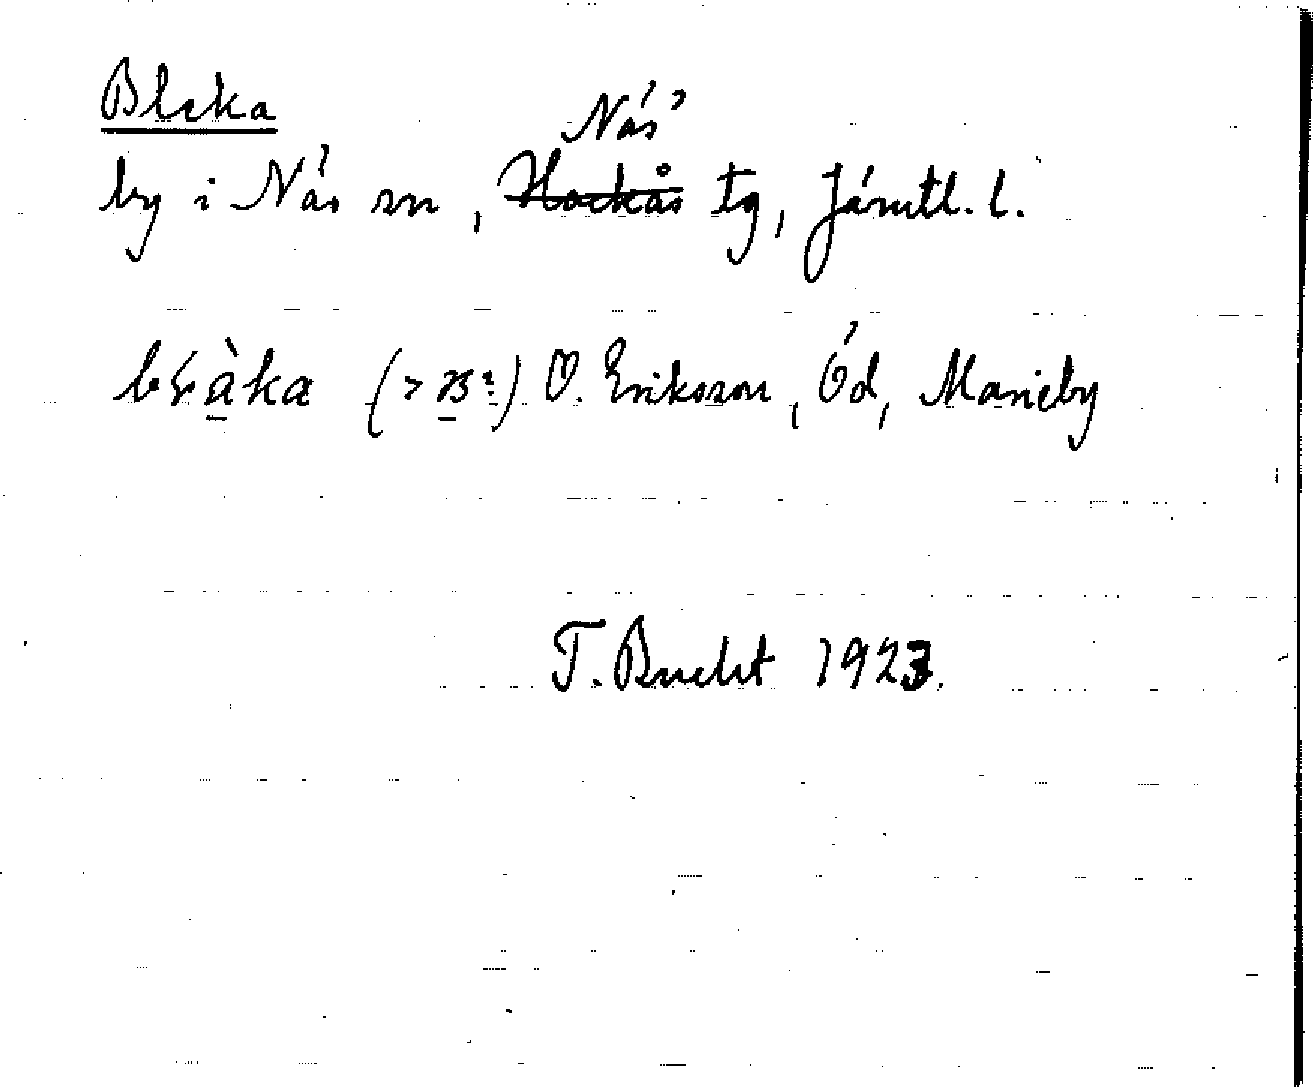 Bleka
Näs
by i Näs sn, Hackås tg, Jämtl. l.
O. Eriksson, Öd, Marieby
T. Bucht 1923.